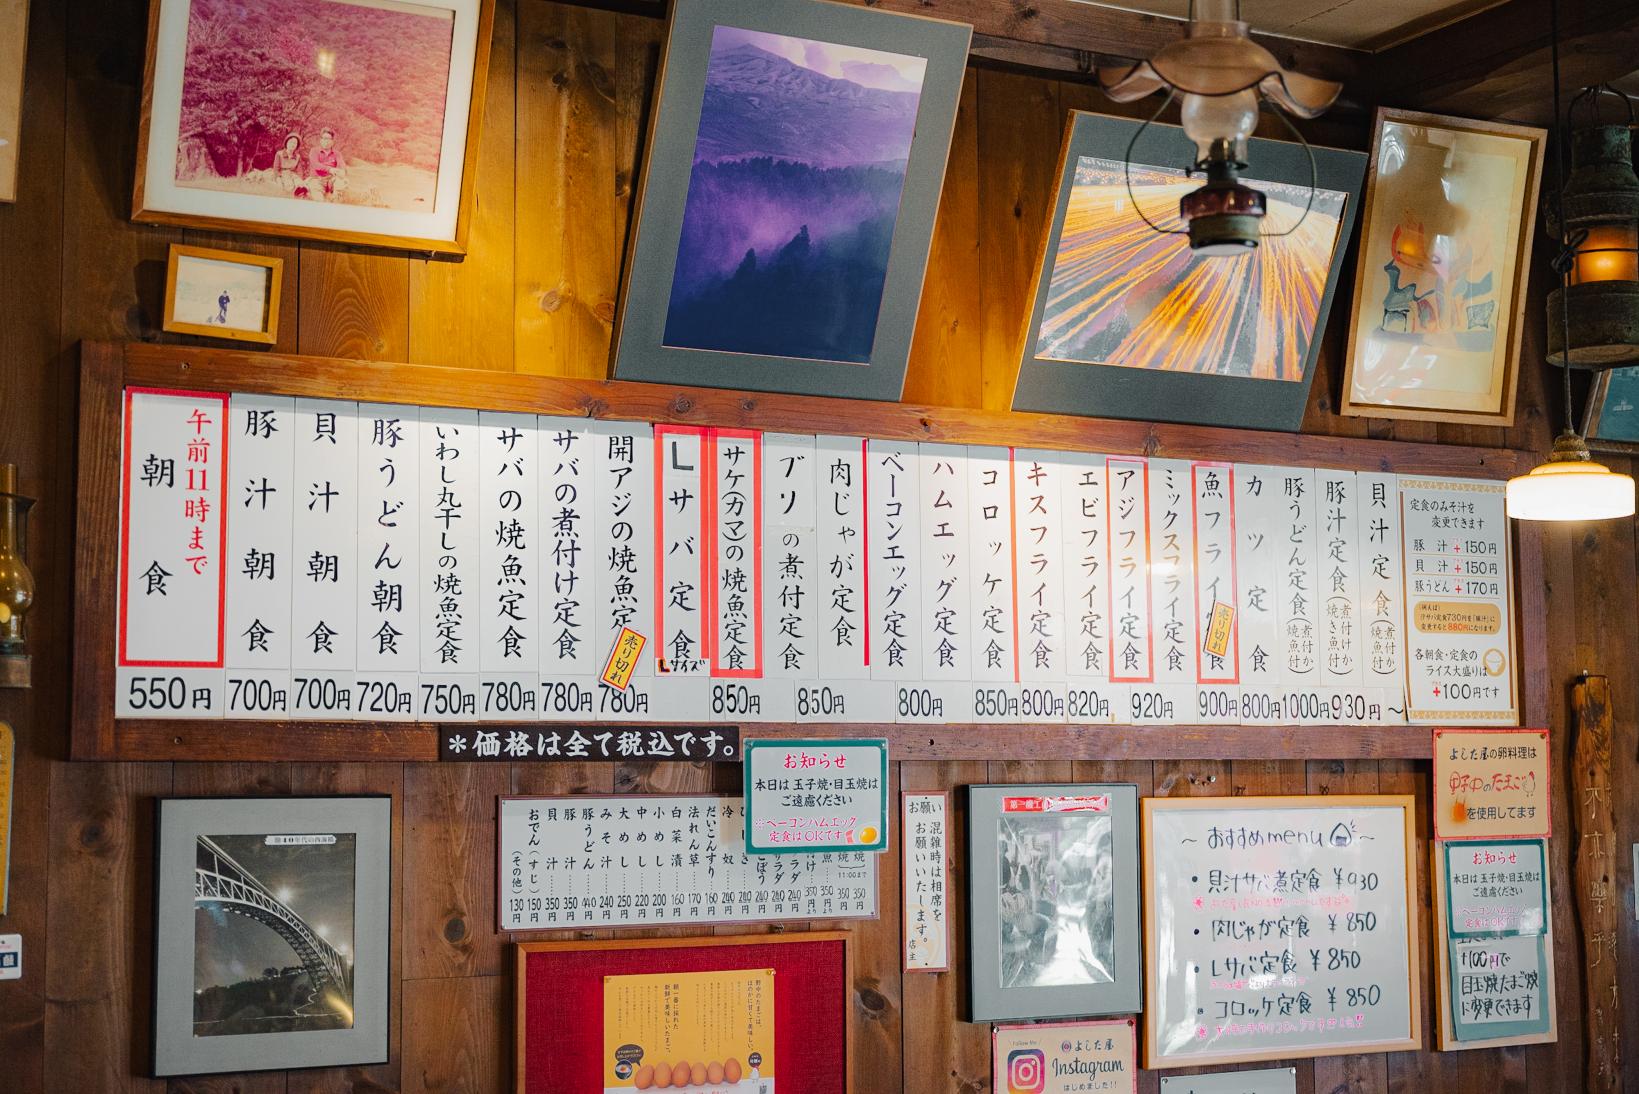 午前11時まで
朝食
550円
豚汁朝食
700円
貝汁朝食
700円
豚うどん朝食
720円
いわし丸干しの焼魚定食
750円
サバの焼魚定食
780円
サバの煮付け定食
780円
開アジの焼魚定
売り切れ
780円
Lサバ定食
Lサイズ
サケ(カマ)の焼魚定食
850円
ブリの煮付定食
肉じゃが定食
850円
ベーコンエッグ定食
800円
ハムエッグ定食
コロッケ定食
850円
キスフライ定食
800円
エビフライ定食
820円
アジフライ定食
920円
ミックスフライ定食
魚フライ
食
売り切れ
900円
カツ定食
800円
豚うどん定食(煮付か焼魚付)
1000円
豚汁定食(煮付けか焼き魚付)
930円
貝汁定食(煮付か焼魚付)
〜
定食のみそ汁を
変更できます
豚汁+150円
貝汁+150円
豚うどん+170円
(例えば)
サバ定食730円を「豚汁」に
変更すると880円になります。
各朝食・定食の
ライス大盛りは
+100円です
*価格は全て税込です。
お知らせ
本日は 玉子焼・目玉焼は
ご遠慮ください
※ベーコンハムエッグ
定食はOKです
おでん(すじ)
(その他)
貝汁
豚汁
豚うどん
みそ汁
大めし
中めし
小めし
白菜漬
法れん草
だいこんすり
冷奴
130円
150円
350円
350円
440円
240円
250円
220円
200円
160円
170円
160円
11:00まで
お願い
混雑時は相席を
お願いいたします。
店主
〜おすすめmenu〜
・貝汁サバ煮定食 ¥930
・肉じゃが定食 ¥850
・Lサバ定食 ¥850
・コロッケ定食 ¥850
よした屋の卵料理は
野中のたまご
を使用してます
お知らせ
本日は 玉子焼・目玉焼は
ご遠慮ください
※ベーコンハムエッグ
+100円で
目玉焼たまご焼
に変更できます
昭和40年代の西海橋
野中のたまごは、
ほのかに甘くて美味しい。
朝一番に採れた
新鮮で美味しいたまご。
Follow Me
よした屋
Instagram
はじめました!!